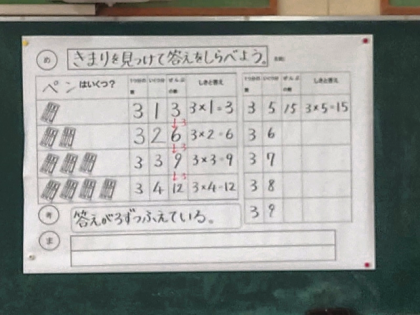 め きまりを見つけて答えをしらべよう。
ペンはいくつ? 1つ分の数 いくつ分 ぜんぶの数 しきと答え 1つ分の数 いくつ分 ぜんぶの数 しきと答え
3 1 3 3×1=3 3 5 15 3×5=15
↓3
3 2 6 3×2=6 3 6
↓3
3 3 9 3×3=9 3 7
↓3
3 4 12 3×4=12 3 8
3 9
考 答えが3ずつふえている。
ま